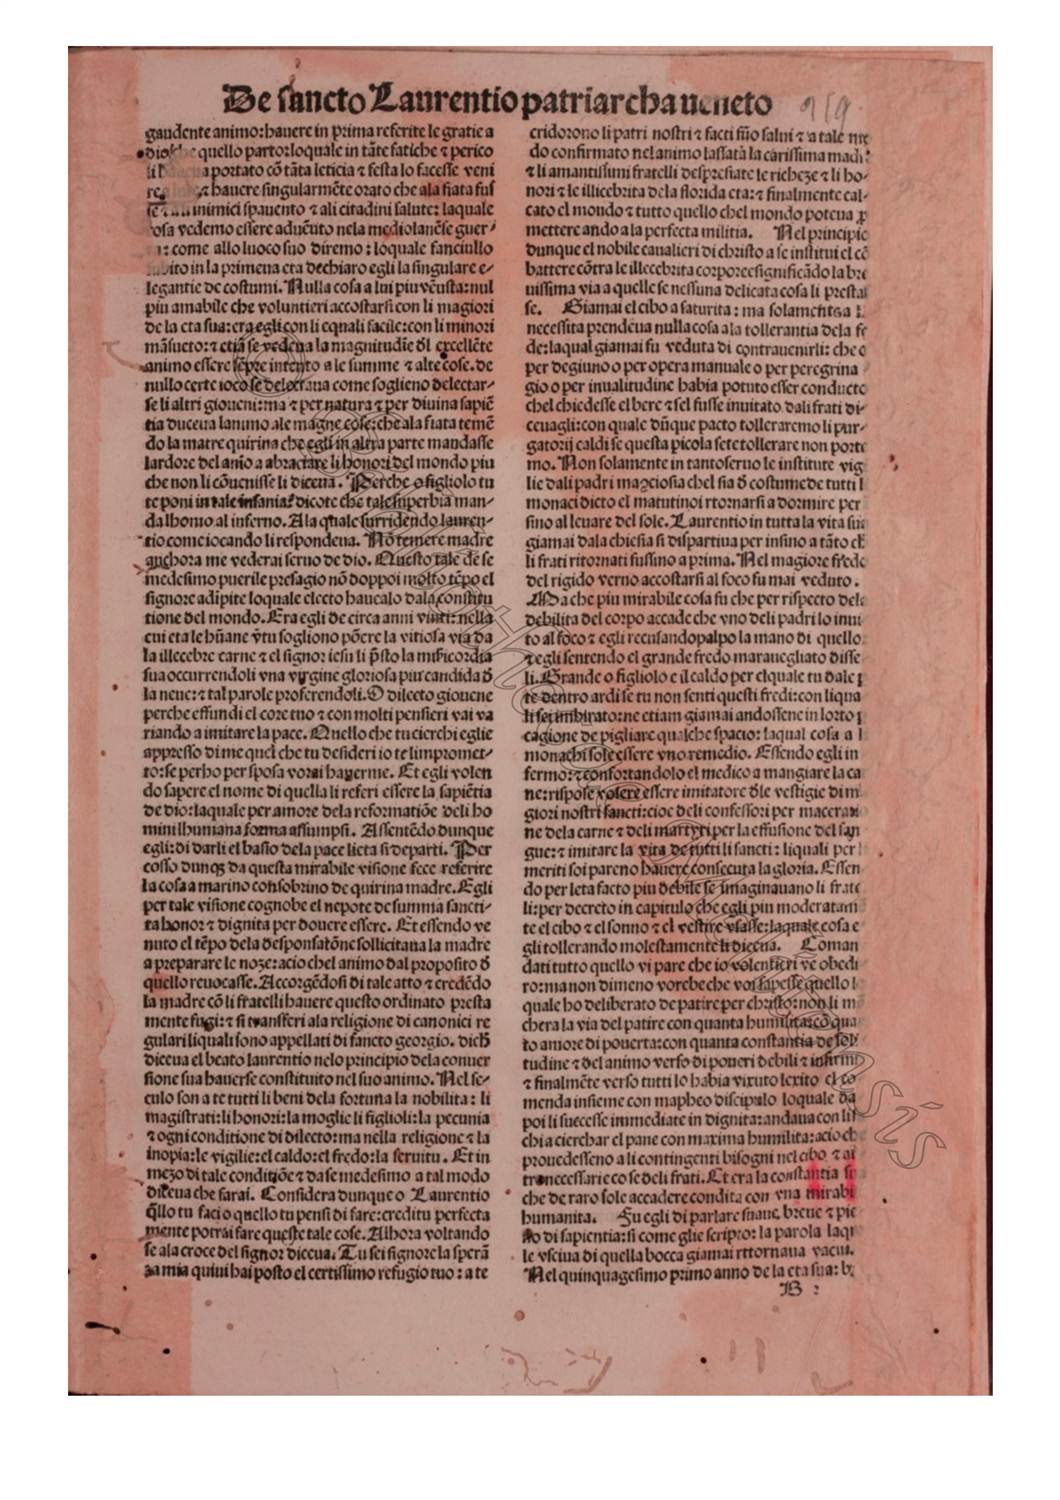 De sancto Laurentio patriarcha ueneto
gaudente animo: hauere in prima referite le gratie a
quello parto: loquale in tāte fatiche ⁊ perico
portato cō tāta leticia ⁊ festa lo facesse veni
⁊ hauere singularmēte orato che ala fiata fus
inimici spauento ⁊ ali citadini salute: laquale
vedemo essere aduēuto nela mediolanēse guer⸗
: come allo luoco suo diremo: loquale fanciullo
in la primeua eta dechiaro egli la singulare e⸗
legantie de costumi. Nulla cosa a lui piu vēusta: nul
piu amabile che voluntieri accostarsi con li magiori
de la eta sua: era egli con li equali facile: con li minori
māsueto: ⁊ etiā se vedeua la magnitudīe dl̄ excellēte
animo essere sēpre intento a le summe ⁊ alte cose. de
nullo certe ioco se delectaua come soglieno delectar⸗
se li altri gioueni: ma ⁊ per natura ⁊ per diuina sapiē
tia duceua lanimo ale magne cose: che ala fiata temē
do la matre quirina che egli in altra parte mandasse
lardore del anīo a abraciare li honori del mondo piu
che non li cōuenisse li diceua. Perche o figliolo tu
te poni in tale insania? dicote che tale superbia man⸗
da lhomo al inferno. A la quale surridendo lauren⸗
tio come iocando li respondeua. Nō temere madre
anchora me vederai seruo de dio. Questo tale de se
medesimo puerile presagio nō doppoi molto tēpo el
signore adīpite loquale electo hauealo dala constitu
tione del mondo. Era egli de circa anni vinti: nella
cui eta le hūane v̄tu sogliono pōere la vitiosa via da
la illecebre carne ⁊ el signor iesu li p̄sto la mīsicordia
sua occurrendoli vna virgine gloriosa piu candida d̄
la neue: ⁊ tal parole proferendoli. O dilecto giouene
perche effundi el core tuo ⁊ con molti pensieri vai va
riando a imitare la pace. Quello che tu cierchi eglie
appresso di me quel che tu desideri io te limpromet⸗
to: se perho per sposa vorai hauerme. Et egli volen
do sapere el nome di quella li referi essere la sapiētia
de dio: laquale per amore dela reformatiōe deli ho
mini lhumana forma assumpsi. Assentēdo dunque
egli: di darli el basio dela pace lieta si departi. Per
cosso dunq; da questa mirabile visione fece referire
la cosa a marino consobrino de quirina madre. Egli
per tale visione cognobe el nepote de summa sancti⸗
ta honor ⁊ dignita per douere essere. Et essendo ve
nuto el tēpo dela desponsatōne sollicitaua la madre
a preparare le noze: acio chel animo dal proposito d̄
quello reuocasse. Accorgēdosi di tale atto ⁊ credēdo
la madre cō li fratelli hauere questo ordinato presta
mente fugi: ⁊ si transferi ala religione di canonici re
gulari liquali sono appellati di sancto georgio. dich
diceua el beato laurentio nelo principio dela conuer
sione sua hauerse constituito nel suo animo. Nel se⸗
culo son a te tutti li beni dela fortuna la nobilita: li
magistrati: li honori: la moglie li figlioli: la pecunia
⁊ ogni conditione di dilecto: ma nella religione ⁊ la
inopia: le vigilie: el caldo: el fredo: la seruitu. Et in
mezo di tale conditiōe ⁊ da se medesimo a tal modo
diceua che farai. Considera dunque o Laurentio
q̄llo tu faci o quello tu pensi di fare: creditu perfecta
mente potrai fare queste tale cose. Alhora voltando
se ala croce del signor diceua. Tu sei signore la sperā
za mia quiui hai posto el certissimo refugio tuo: a te
cridorono li patri nostri ⁊ facti sūo salui ⁊ a tale mo
do confirmato nel animo lassata la carissima madre
⁊ li amantissimi fratelli despresiate le richeze ⁊ li ho⸗
nori ⁊ le illicebrita de la florida eta: ⁊ finalmente cal⸗
cato el mondo ⁊ tutto quello chel mondo poteua ꝑ
mettere ando a la perfecta militia. Nel principio
dunque el nobile caualieri di christo a se institui el cō
battere cōtra le illecebrita corporee significādo la bre
uissima via a quelle se nessuna delicata cosa li presta
se. Giamai el cibo a saturita: ma solamente a
necessita prendeua nulla cosa a la tollerantia dela se
de: laqual giamai fu veduta di contrauenirli: che o
per degiuno o per opera manuale o per peregrina
gio o per inualitudine habia potuto esser conducto
chel chiedesse el bere ⁊ sel fusse inuitato dali frati di⸗
ceuagli: con quale dūque pacto tolleraremo li pur⸗
gatorij caldi se questa picola sete tollerare non porte
mo. Non solamente in tanto seruo le institute vig
lie dali padri ma cosia chel sia d̄ costume de tutti l
monaci dicto el matutino i rtornarsi a dormire per
sino al leuare del sole. Laurentio in tutta la vita sua
giamai dala chiesia si dispartiua per insino a tāto ch
li frati ritornati fussino a prima. Nel magiore fredo
del rigido verno accostarsi al foco fu mai veduto.
Ma che piu mirabile cosa fu che per rispecto dela
debilita del corpo accade che vno deli padri lo inui
to al foco ⁊ egli recusando palpo la mano di quello
⁊ egli sentendo el grande fredo marauegliato disse
li. Grande o figliolo e il caldo per elquale tu dale p
te dentro ardi se tu non senti questi fredi: con liqua
li sei imbirato: ne etiam giamai andossene in lorto p
cagione de pigliare qualche spacio: laqual cosa a l
monachi sole essere vno remedio. Essendo egli in
fermo: ⁊ confortandolo el medico a mangiare la ca
ne: rispose volere essere imitatore dl̄e vestigie di m
giori nostri sancti: cioe deli confessori per maceratio
ne dela carne ⁊ deli martyri per la effusione del san
gue: ⁊ imitare la vita de tutti li sancti: liquali per l
meriti soi pareno hauere consecuta la gloria. Essen
do per leta facto piu debile se imaginauano li frate
li: per decreto in capitulo che egli piu moderatam
te el cibo ⁊ el sonno ⁊ el vestire vsasse: laquale cosa e
gli tollerando molestamente li diceua. Coman
dati tutto quello vi pare che io volentieri ve obedi
ro: ma non dimeno vorebe che voi sapesse quello l
quale ho deliberato de patire per christo: non li m
chera la via del patire con quanta humilita: cō qua
to amore di pouerta: con quanta constantia de sol
tudine ⁊ del animo verso di poueri debili ⁊ infirmi
⁊ finalmēte verso tutti lo habia vixuto lexito el co
menda insieme con mapheo discipulo loquale da
poi li sucesse immediate in dignita: andaua con lis
chi a cierchar el pane con maxima humilita: acio che
prouedesseno a li contingenti bisogni nel cibo ⁊ ai
tre necessarie cose deli frati. Et era la constantia su
che de raro sole accadere condita con vna mirabi
humanita. Fu egli di parlare suaue breue ⁊ pie
no di sapientia: si come glie scripto: la parola laqu
le vsciua di quella bocca giamai rttornaua vacua.
Nel quinquagesimo primo anno de la eta sua: b
B